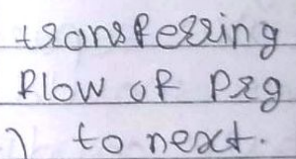 transferring
flow of prg
) to next.